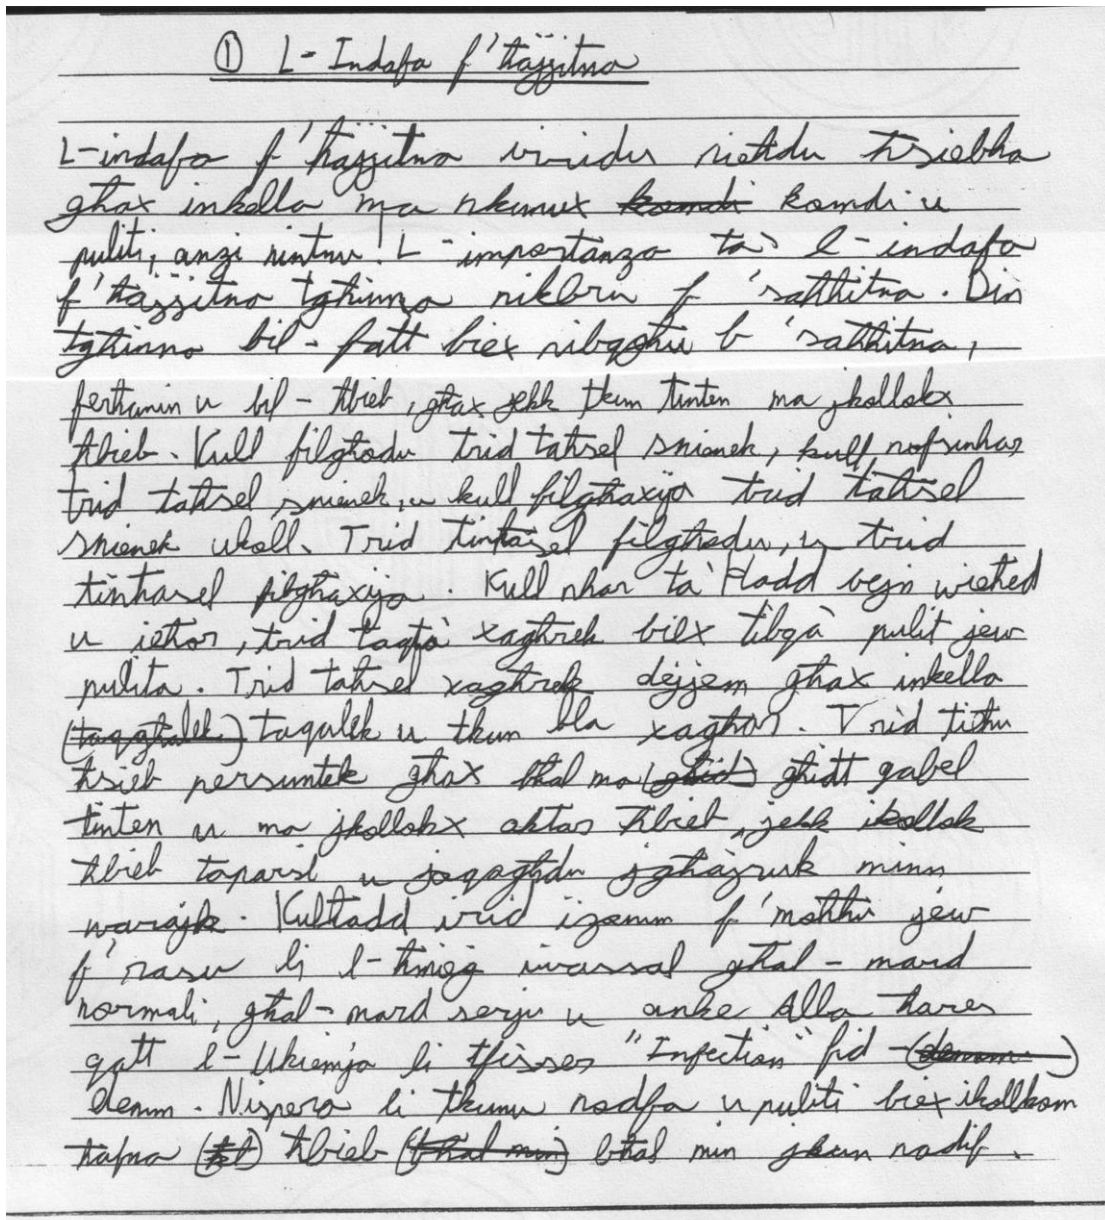 ① L-Indafa f'ħajjitna
L-indafa f'ħajjitna irridu nieħdu ħsiebha
għax inkella ma nkunux ~~komdi~~ komdi u
puliti, anzi nintnu! L-importanza ta' l-indafa
f'ħajjitna tgħinna nikbru f'saħħitna. Din
tgħinna bil-fatt biex nibqgħu b'saħħitna,
ferħanin u bil-ħbieb, għax jekk tkun tinten ma jkollokx
ħbieb. Kull filgħodu trid taħsel snienek, kull nofsinhar
trid taħsel snienek, u kull filgħaxija trid taħsel
snienek ukoll. Trid tinħasel filgħodu, u trid
tinħasel filgħaxija. Kull nhar ta' Ħadd bejn wieħed
u ieħor, trid taqta' xagħrek biex tibqa' pulit jew
pulita. Trid taħsel xagħrek dejjem għax inkella
(~~taqgħalek~~) taqalek u tkun bla xagħar. Trid tieħu
ħsieb persuntek għax bħal ma (~~għid~~) għidt qabel
tinten u ma jkollokx aktar ħbieb, jekk ikollok
ħbieb taparsi u joqogħdu jgħajruk minn
warajk. Kulħadd irid iżomm f'moħħu jew
f'rasu li l-ħmieġ iwassal għal-mard
normali, għal-mard serju u anke Alla ħares
qatt l-Ukiemja li tfisser "Infection" fid-(~~demm~~)
demm. Nispera li tkunu nodfa u puliti biex ikollkom
ħafna (~~ħb~~) ħbieb (~~bħal min~~) bħal min jkun nadif.